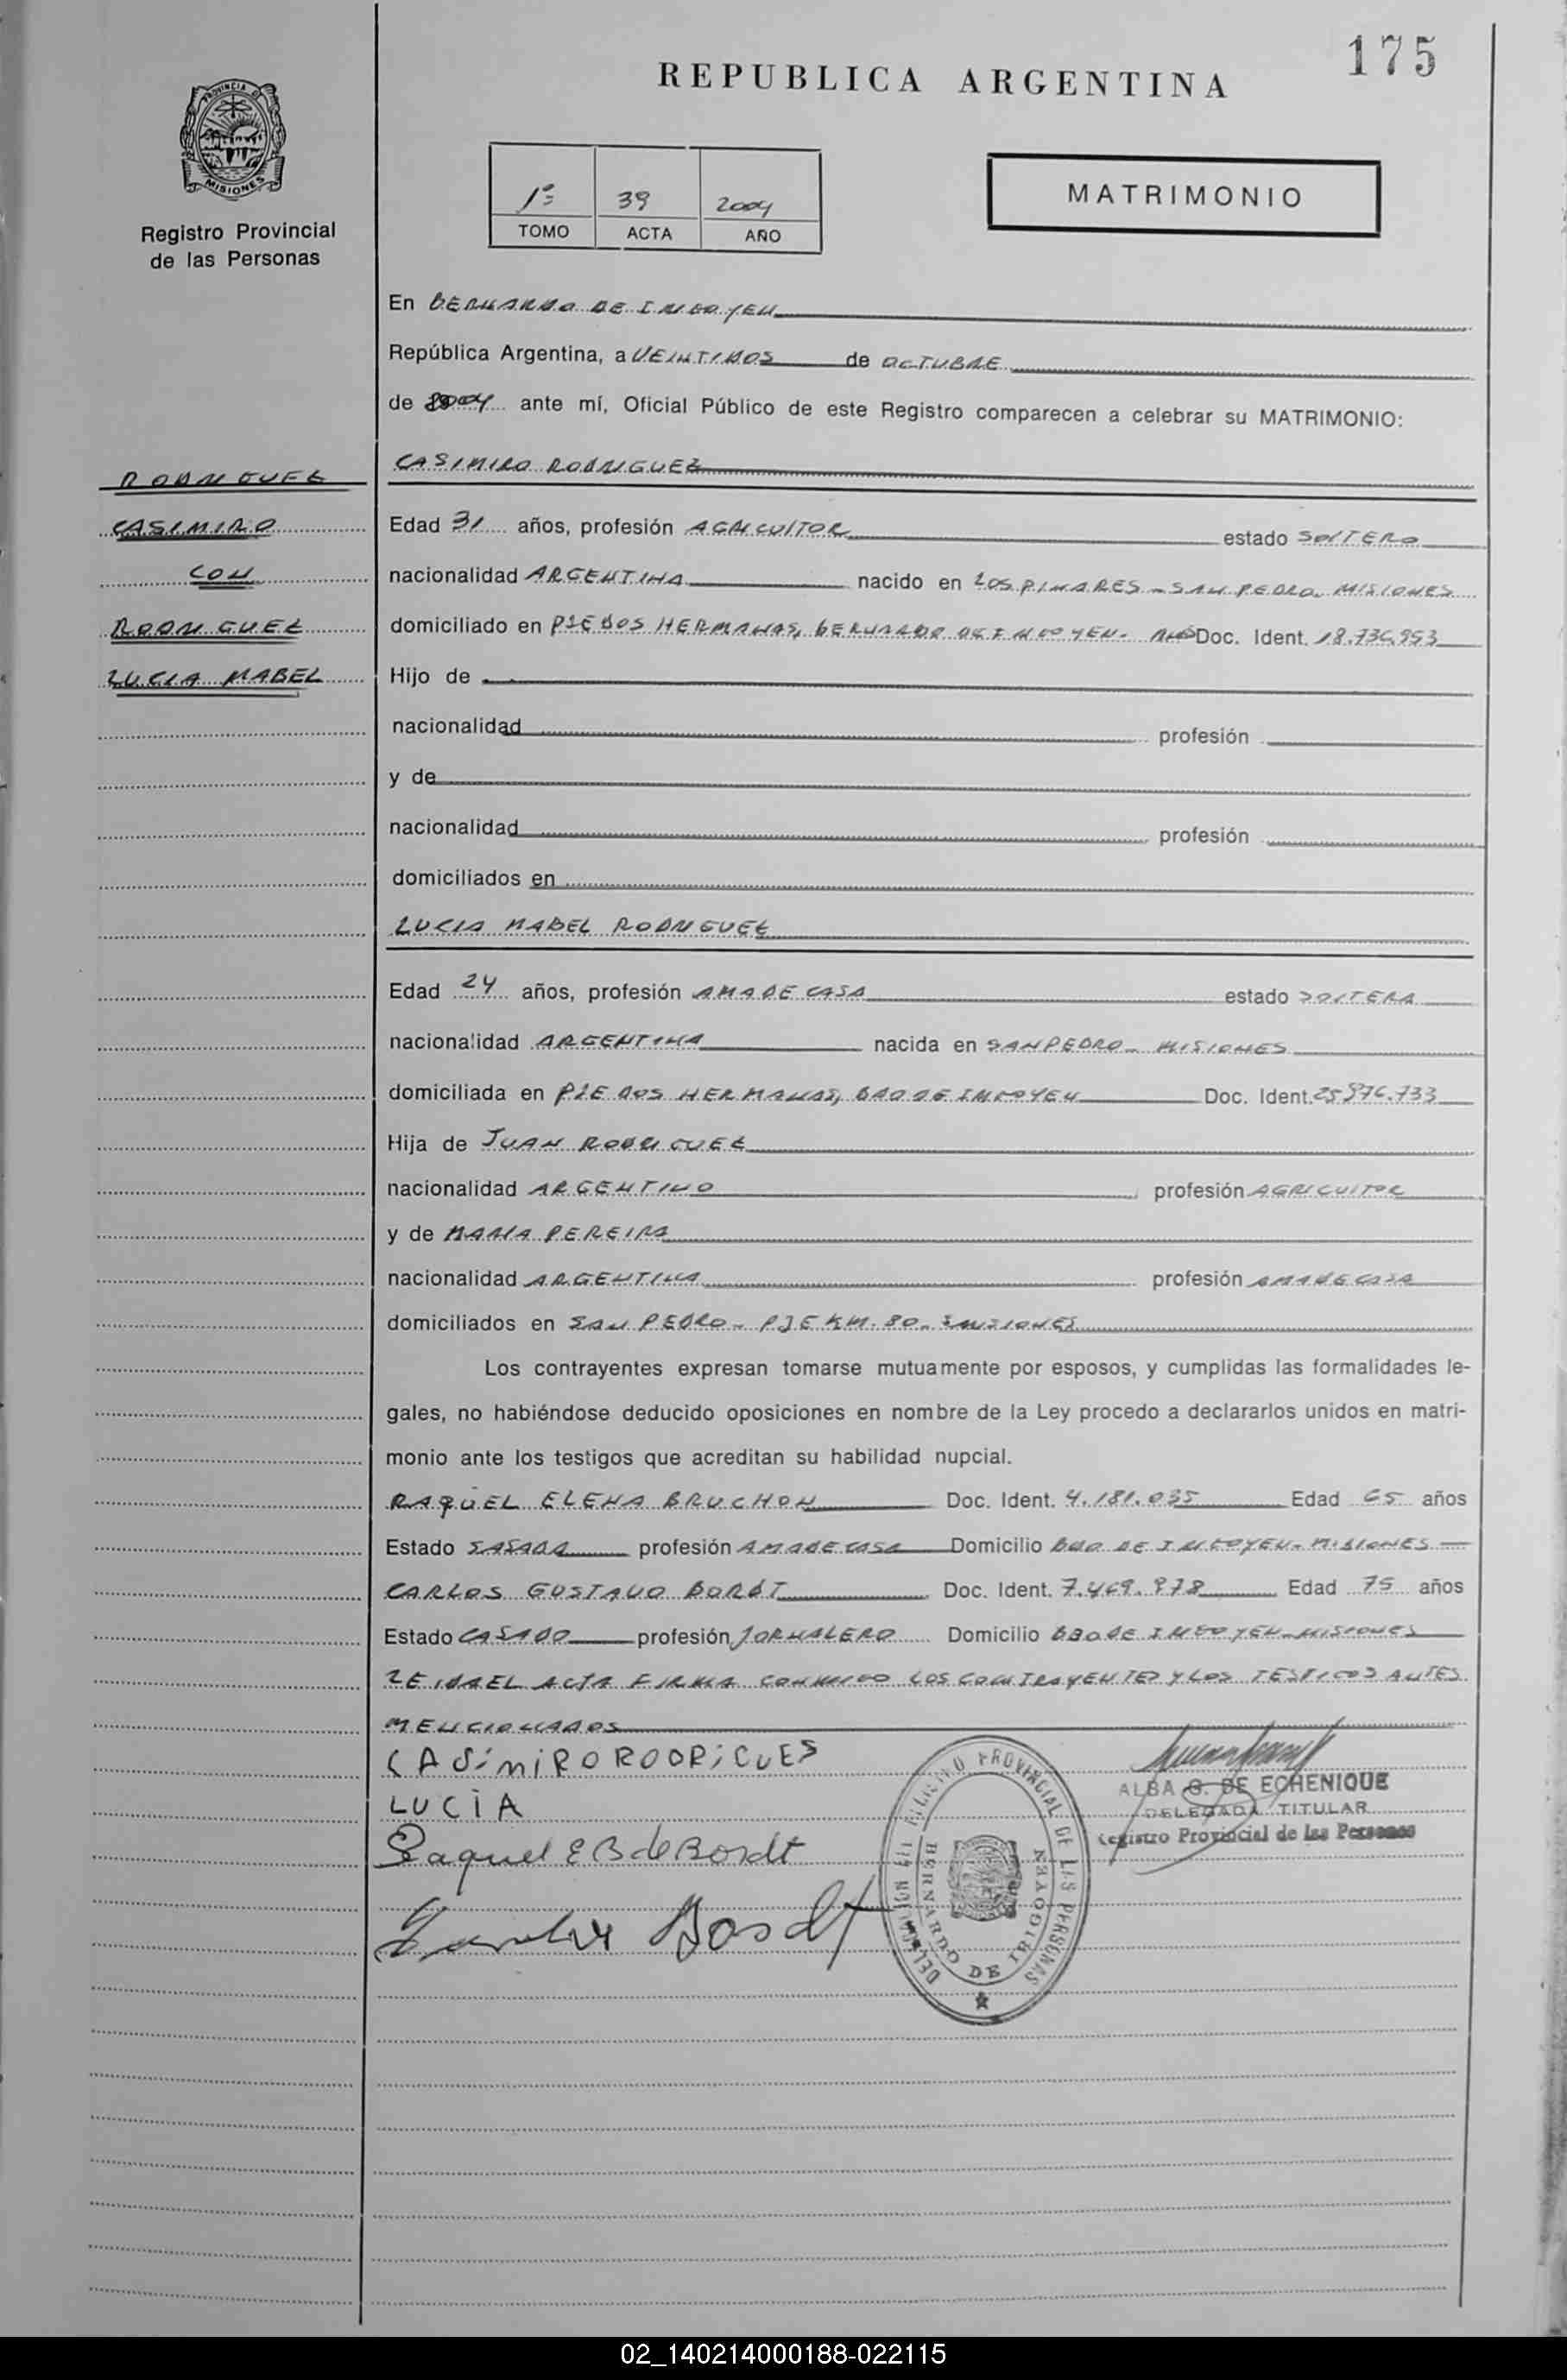 175
REPUBLICA ARGENTINA
PROVINCIA D
MISIONES
Registro Provincial
de las Personas
1º 39 2004
TOMO ACTA AÑO
MATRIMONIO
En BERNARDO DE IRIGOYEN
República Argentina, a VEINTIDOS de OCTUBRE
de 2004 ante mí, Oficial Público de este Registro comparecen a celebrar su MATRIMONIO:
RODRIGUEZ
CASIMIRO
CON
RODRIGUEZ
LUCIA MABEL
CASIMIRO RODRIGUEZ
Edad 31 años, profesión AGRICULTOR estado SOLTERO
nacionalidad ARGENTINA nacido en LOS PINARES - SAN PEDRO. MISIONES
domiciliado en PJE DOS HERMANAS, BERNARDO DE IRIGOYEN - Doc. Ident. 18.736.953
Hijo de
nacionalidad profesión
y de
nacionalidad profesión
domiciliados en
LUCIA MABEL RODRIGUEZ
Edad 24 años, profesión AMA DE CASA estado SOLTERA
nacionalidad ARGENTINA nacida en SAN PEDRO - MISIONES
domiciliada en PJE DOS HERMANAS, BDO DE IRIGOYEN Doc. Ident. 25.976.733
Hija de JUAN RODRIGUEZ
nacionalidad ARGENTINO profesión AGRICULTOR
y de MARIA PEREIRA
nacionalidad ARGENTINA profesión AMA DE CASA
domiciliados en SAN PEDRO - PJE KM. 80 - MISIONES
Los contrayentes expresan tomarse mutuamente por esposos, y cumplidas las formalidades le-
gales, no habiéndose deducido oposiciones en nombre de la Ley procedo a declararlos unidos en matri-
monio ante los testigos que acreditan su habilidad nupcial.
RAQUEL ELENA BRUCHON Doc. Ident. 4.181.035 Edad 65 años
Estado CASADA profesión AMA DE CASA Domicilio BDO DE IRIGOYEN - MISIONES
CARLOS GUSTAVO BORDT Doc. Ident. 7.469.978 Edad 75 años
Estado CASADO profesión JORNALERO Domicilio BDO DE IRIGOYEN - MISIONES
LEIDA EL ACTA FIRMA CONMIGO LOS CONTRAYENTES Y LOS TESTIGOS ANTES
MENCIONADOS
CASIMIRO RODRIGUES
LUCÍA
Raquel E B de Bordt
Bordt
REGISTRO PROVINCIAL DE LAS PERSONAS
BERNARDO DE IRIGOYEN
ALBA G. DE ECHENIQUE
DELEGADA TITULAR
Registro Provincial de las Personas
02_140214000188-022115